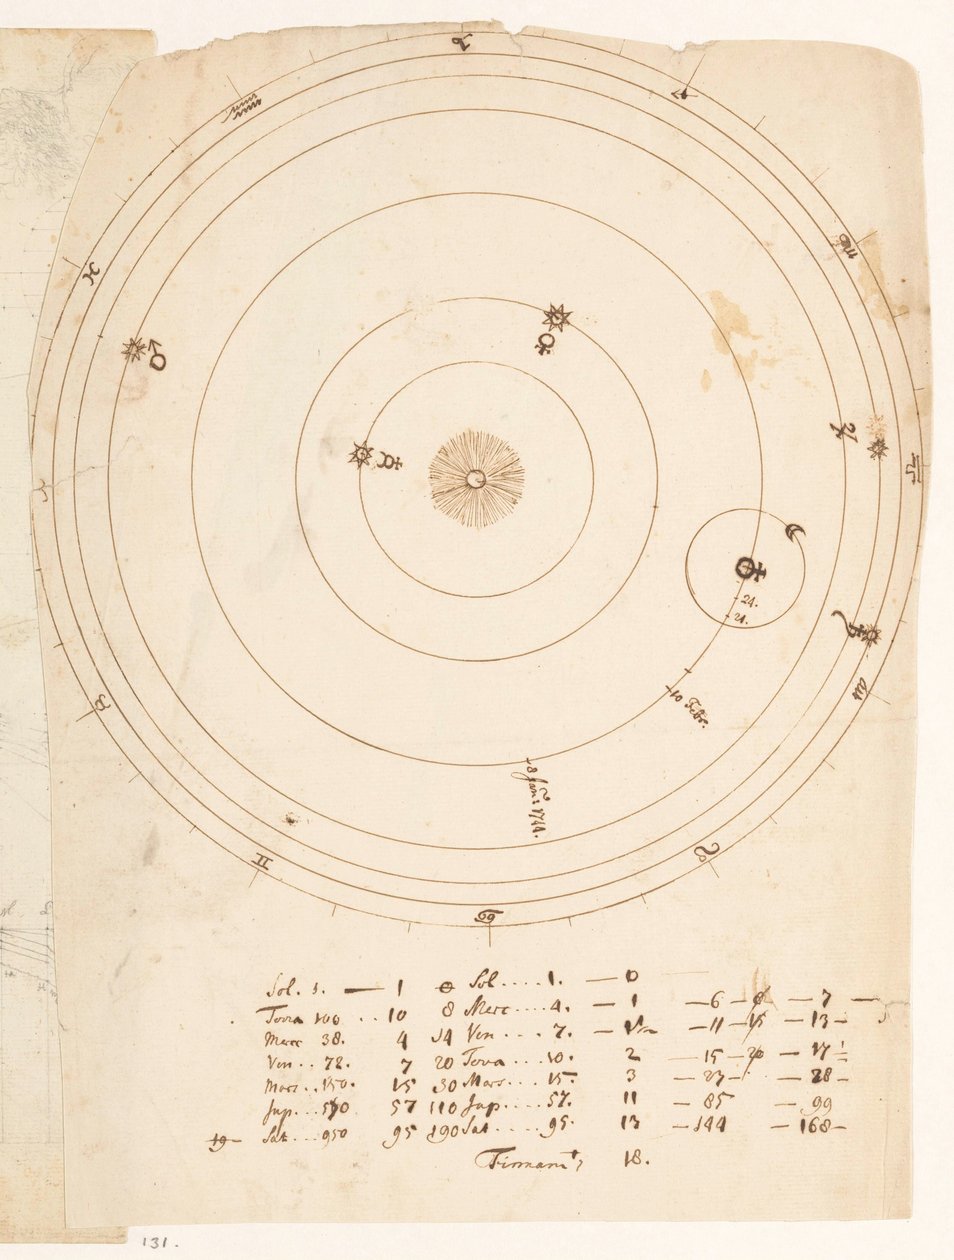 ♑
♐
♒
♏
♓
♀
♂
♃
☿
♎
♈
24.
21.
♄
♍
10 Febr.
♉
8 Jan: 1744.
♌
♊
♋
Sol. 1. — 1 0 Sol.... 1. — 0
Terra 100 .. 10 8 Merc.... 4. — 1 — 6 — 8 — 7 —
Merc 38. 4 14 Ven... 7. — — 11 — 15 — 13 —
Ven.. 72. 7 20 Terra... 10. 2 — 15 — 20 — 17 ½
Mars.. 150. 15 30 Mars... 15. 3 — 27 — — 28 —
Jup... 570 57 110 Jup.... 57. 11 — 85 — 99
19 — Sat... 950 95 190 Sat.... 95. 13 — 144 — 168 —
Firmam 18.
131.